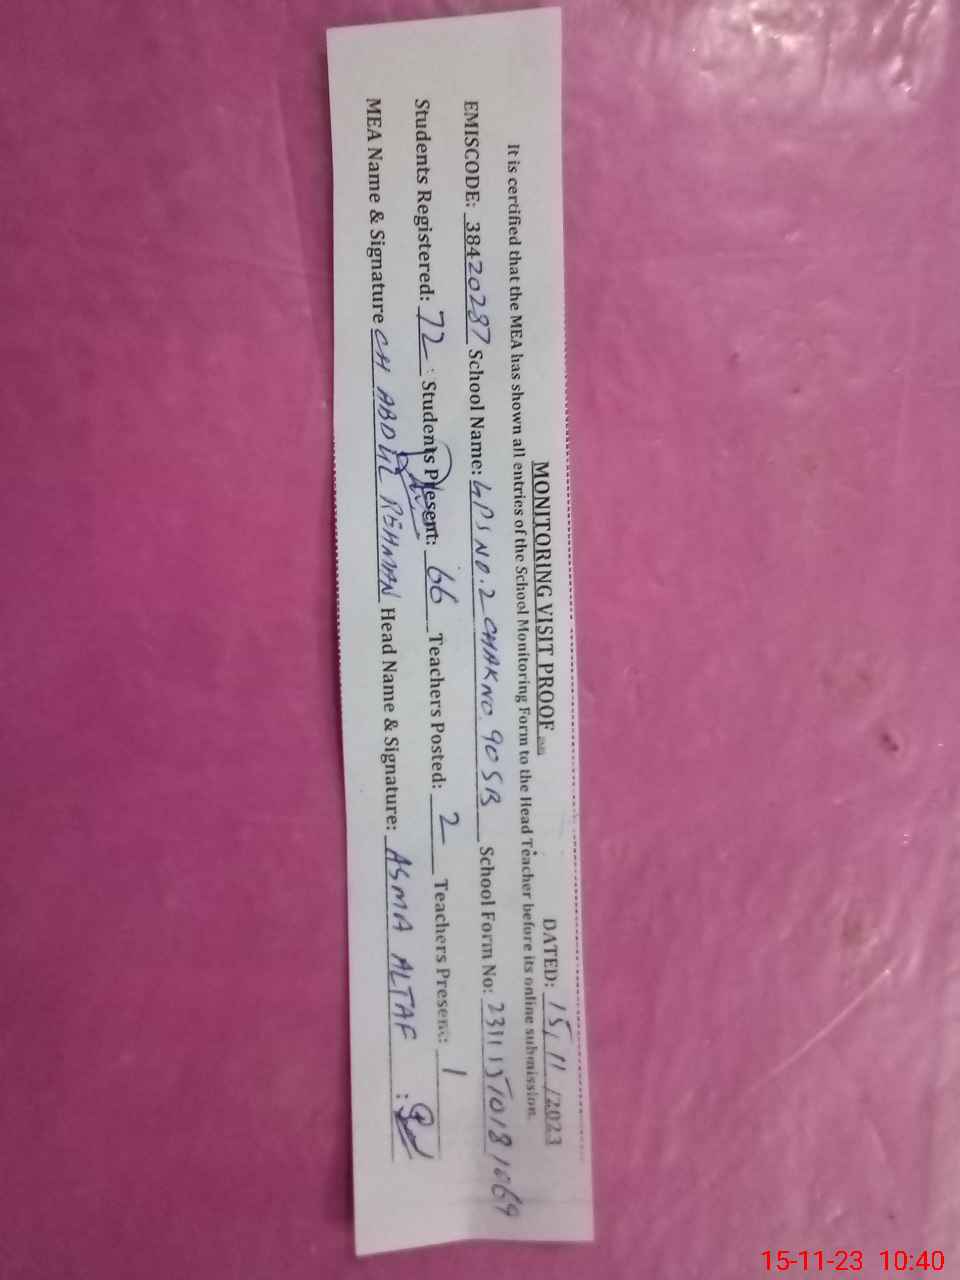 MONITORING VISIT PROOF
DATED: 15/11/2023
It is certified that the MEA has shown all entries of the School Monitoring Form to the Head Teacher before its online submission.
EMISCODE: 38420287 School Name: GPS NO.2 CHAK NO. 90 SB School Form No:
Students Registered: 72 : Students Present: 66 Teachers Posted: 2 Teachers Present: 1
MEA Name & Signature CH ABDUL REHMAN Head Name & Signature: ASMA ALTAF :
15-11-23 10:40